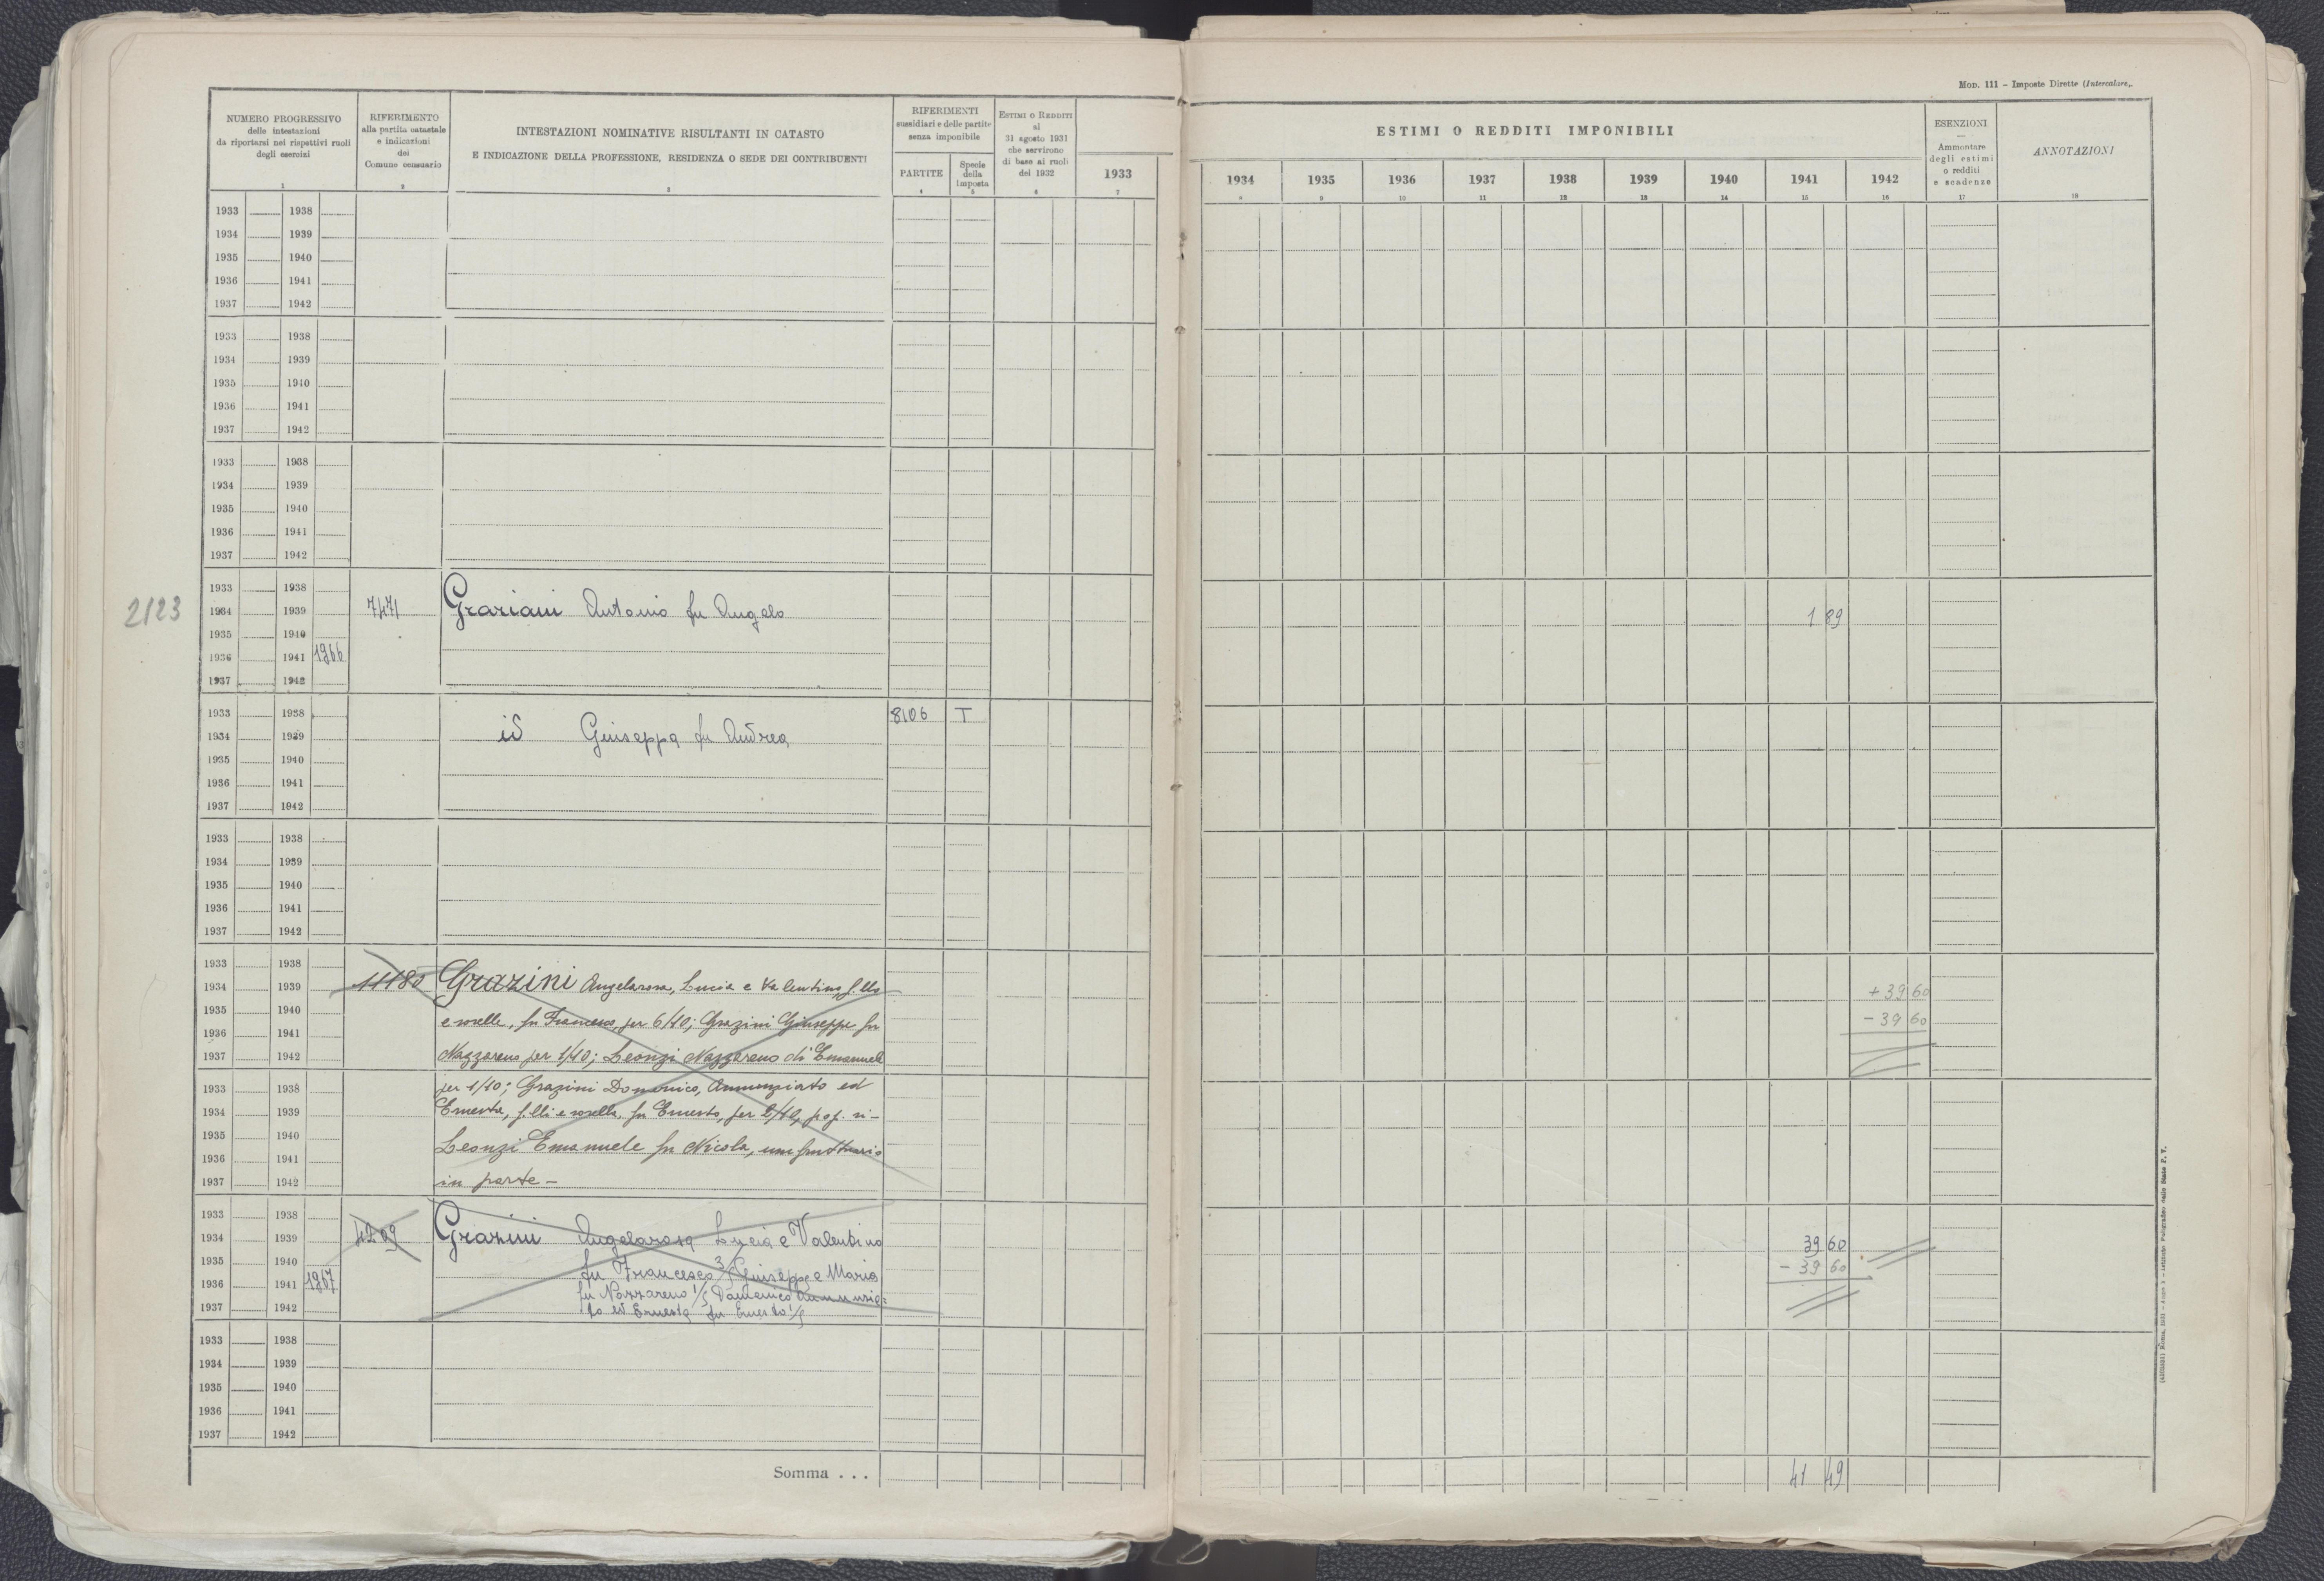 Mod. 111 – Imposte Dirette (Intercalare).
NUMERO PROGRESSIVO
delle intestazioni
da riportarsi nei rispettivi ruoli
degli esercizi
1
RIFERIMENTO
alla partita catastale
e indicazioni
del
Comune censuario
2
INTESTAZIONI NOMINATIVE RISULTANTI IN CATASTO
E INDICAZIONE DELLA PROFESSIONE, RESIDENZA O SEDE DEI CONTRIBUENTI
3
RIFERIMENTI
sussidiari e delle partite
senza imponibile
PARTITE
4
Specie
della
imposta
5
Estimi o Redditi
al
31 agosto 1931
che servirono
di base ai ruoli
del 1932
6
1933
7
ESTIMI O REDDITI IMPONIBILI
1934 1935 1936 1937 1938 1939 1940 1941 1942
8 9 10 11 12 13 14 15 16
ESENZIONI
—
Ammontare
degli estimi
o redditi
e scadenze
17
ANNOTAZIONI
18
1933 1938
1934 1939
1935 1940
1936 1941
1937 1942
1933 1938
1934 1939
1935 1940
1936 1941
1937 1942
1933 1938
1934 1939
1935 1940
1936 1941
1937 1942
2123
1933 1938
1934 1939 7471 Graziani Antonio fu Angelo 1 89
1935 1940
1936 1941 1966
1937 1942
1933 1938 8106 T
1934 1939 id Giuseppa fu Andrea
1935 1940
1936 1941
1937 1942
1933 1938
1934 1939
1935 1940
1936 1941
1937 1942
1933 1938
1934 1939 11180 Grazini Angelarosa, Lucia e Valentino, f.lli + 39 60
1935 1940 e sorelle, fu Francesco, per 6/10; Grazini Giuseppe fu - 39 60
1936 1941
1937 1942 Nazzareno per 1/10; Leonzi Nazzareno di Emanuele
1933 1938 per 1/10; Grazini Domenico, Annunziato ed
1934 1939 Ernesta, f.lli e sorella, fu Ernesto, per 2/10, prop. ri-
1935 1940 Leonzi Emanuele fu Nicola, usufruttuario
1936 1941
1937 1942 in parte -
1933 1938
1934 1939 4209 Grazini Angelarosa Lucia e Valentino 39 60
1935 1940 fu Francesco 3/5 Giuseppe e Maria - 39 60
1936 1941 1967 fu Nazzareno 1/5 Domenico Annunzia=
1937 1942 to ed Ernesta fu Ernesto 1/5
1933 1938
1934 1939
1935 1940
1936 1941
1937 1942
Somma . . . 41 49